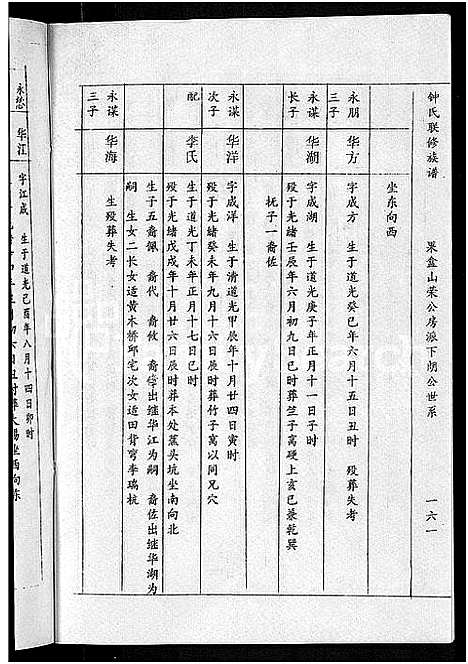 钟氏联修族谱 果盒山荣公房派下朗公世系 一六一
坐东向西
永朋三子 华方 字成方 生于道光癸巳年六月十五日丑时 殁葬失考
永谋长子 华湖 字成湖 生于道光庚子年正月十一日子时
殁于光绪壬辰年六月初九日辰时葬竺子窝硬上亥巳兼乾巽
抚子一裔佐
永谋次子 华洋 字成洋 生于清道光甲辰年十月廿四日寅时
殁于光绪癸未年九月十六日辰时葬竹子窝以同兄穴
配 李氏 生于道光丁未年正月十七日巳时
殁于光绪戊戌年十月廿六日辰时葬本处蕉头坑坐南向北
生子五裔佩 裔代 裔攸 裔 出继华江为嗣 裔佐出继华湖为
嗣 生女二长女适黄木桥邱宅次女适田背 李瑞杭
永谋三子 华海 生殁葬失考
永悐 华江 字江成 生于道光己酉年八月十四日卯时